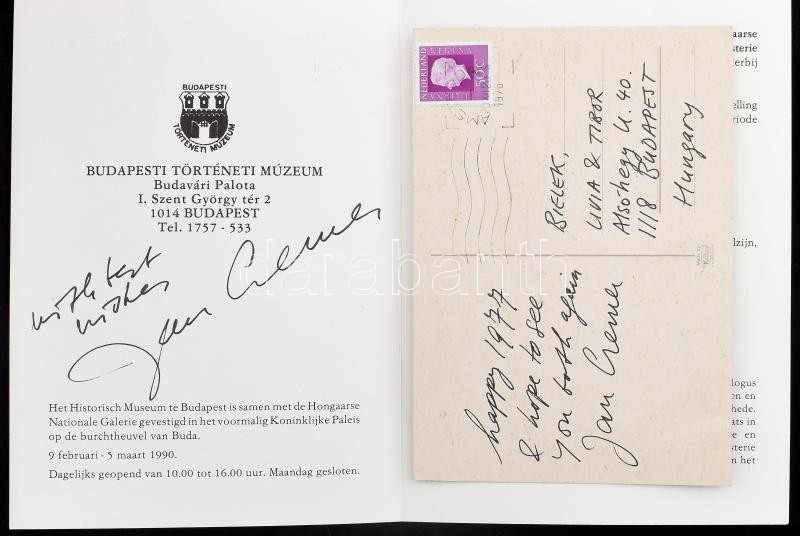 BUDAPESTI
TÖRTÉNETI MÚZEUM
BUDAPESTI TÖRTÉNETI MÚZEUM
Budavári Palota
I. Szent György tér 2
1014 BUDAPEST
Tel. 1757 - 533
with best
wishes
Jan Cremer
Het Historisch Museum te Budapest is samen met de Hongaarse
Nationale Galerie gevestigd in het voormalig Koninklijke Paleis
op de burchtheuvel van Buda.
9 februari - 5 maart 1990.
Dagelijks geopend van 10.00 tot 16.00 uur. Maandag gesloten.
NEDERLAND
REGINA
JULIANA
50c
1976
BIELEK,
LIVIA & TIBOR
Alsohegy U. 40.
1118 BUDAPEST
Hungary
happy 1977
& hope to see
you both again
Jan Cremer
darabanth
aarse
sterie
erbij
elling
riode
lzijn,
logus
en en
hede.
ats in
e en
sterie
n het